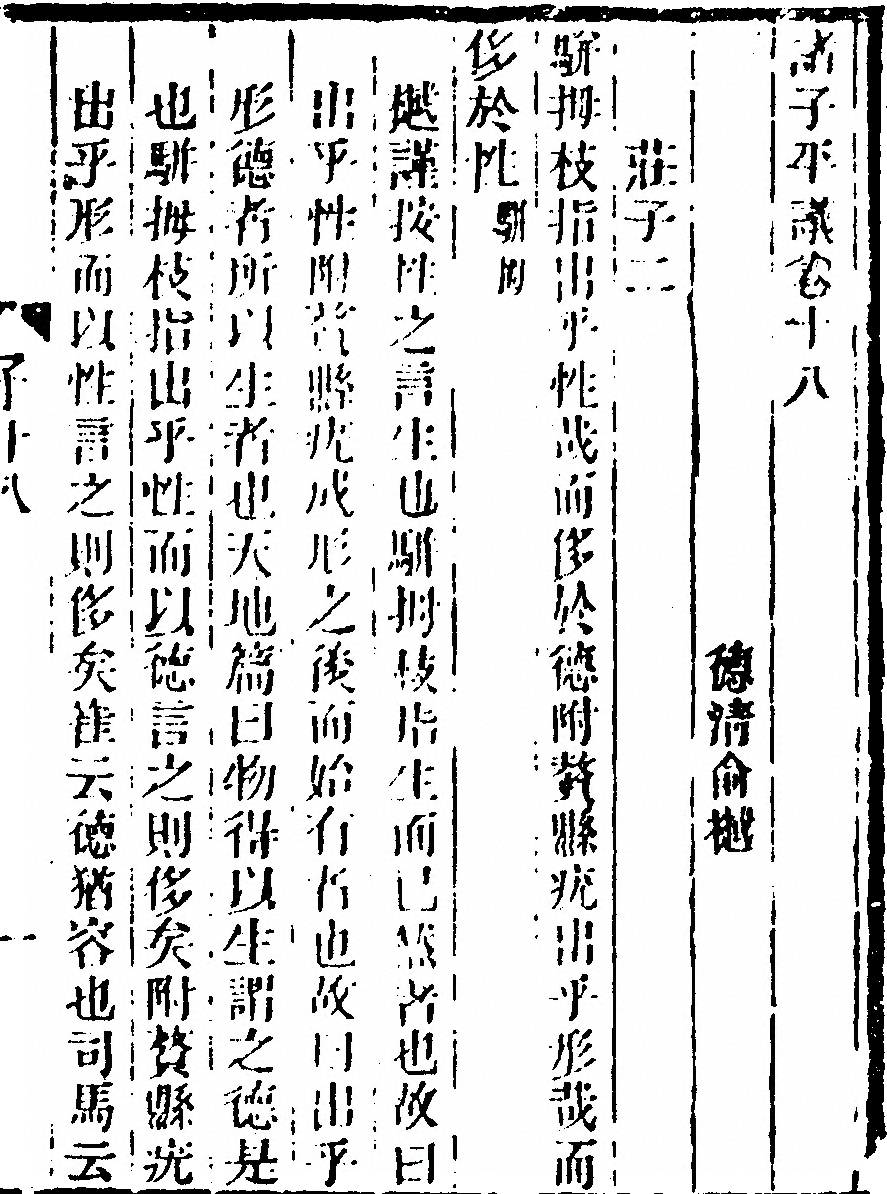 諸子平議卷十八
德清俞樾
莊子二
駢拇枝指出乎性哉而侈於德附贅縣疣出乎形哉而
侈於性駢拇
樾謹按性之言生也駢拇枝指生而已然者也故曰
出乎性附贅縣疣成形之後而始有者也故曰出乎
形德者所以生者也天地篇曰物得以生謂之德是
也駢拇枝指出乎性而以德言之則侈矣附贅縣疣
出乎形而以性言之則侈矣崔云德猶容也司馬云
子十八
一